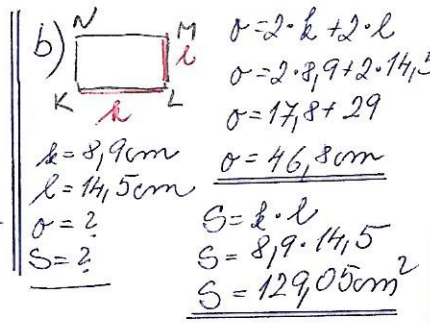 b)
N M
l
K L
k
k = 8,9cm
l = 14,5cm
o = ?
S = ?
o = 2·k + 2·l
o = 2·8,9 + 2·14,5
o = 17,8 + 29
o = 46,8cm
S = k·l
S = 8,9·14,5
S = 129,05cm²